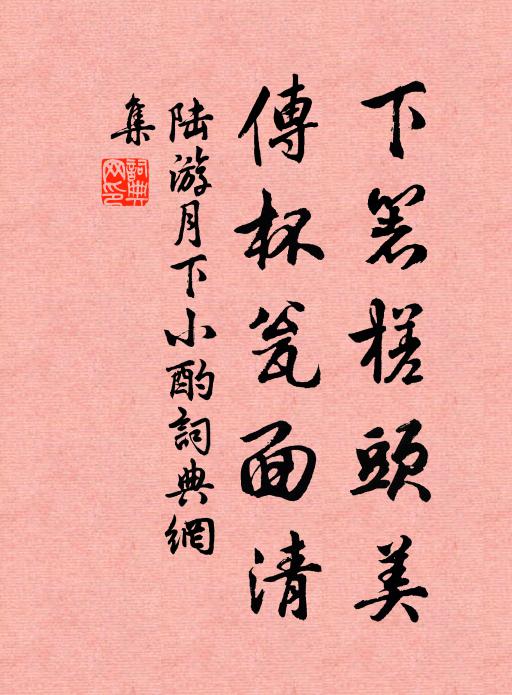 下箸槎頭美
傳杯瓮面清
陸游月下小酌詞典網
集
詞典網印